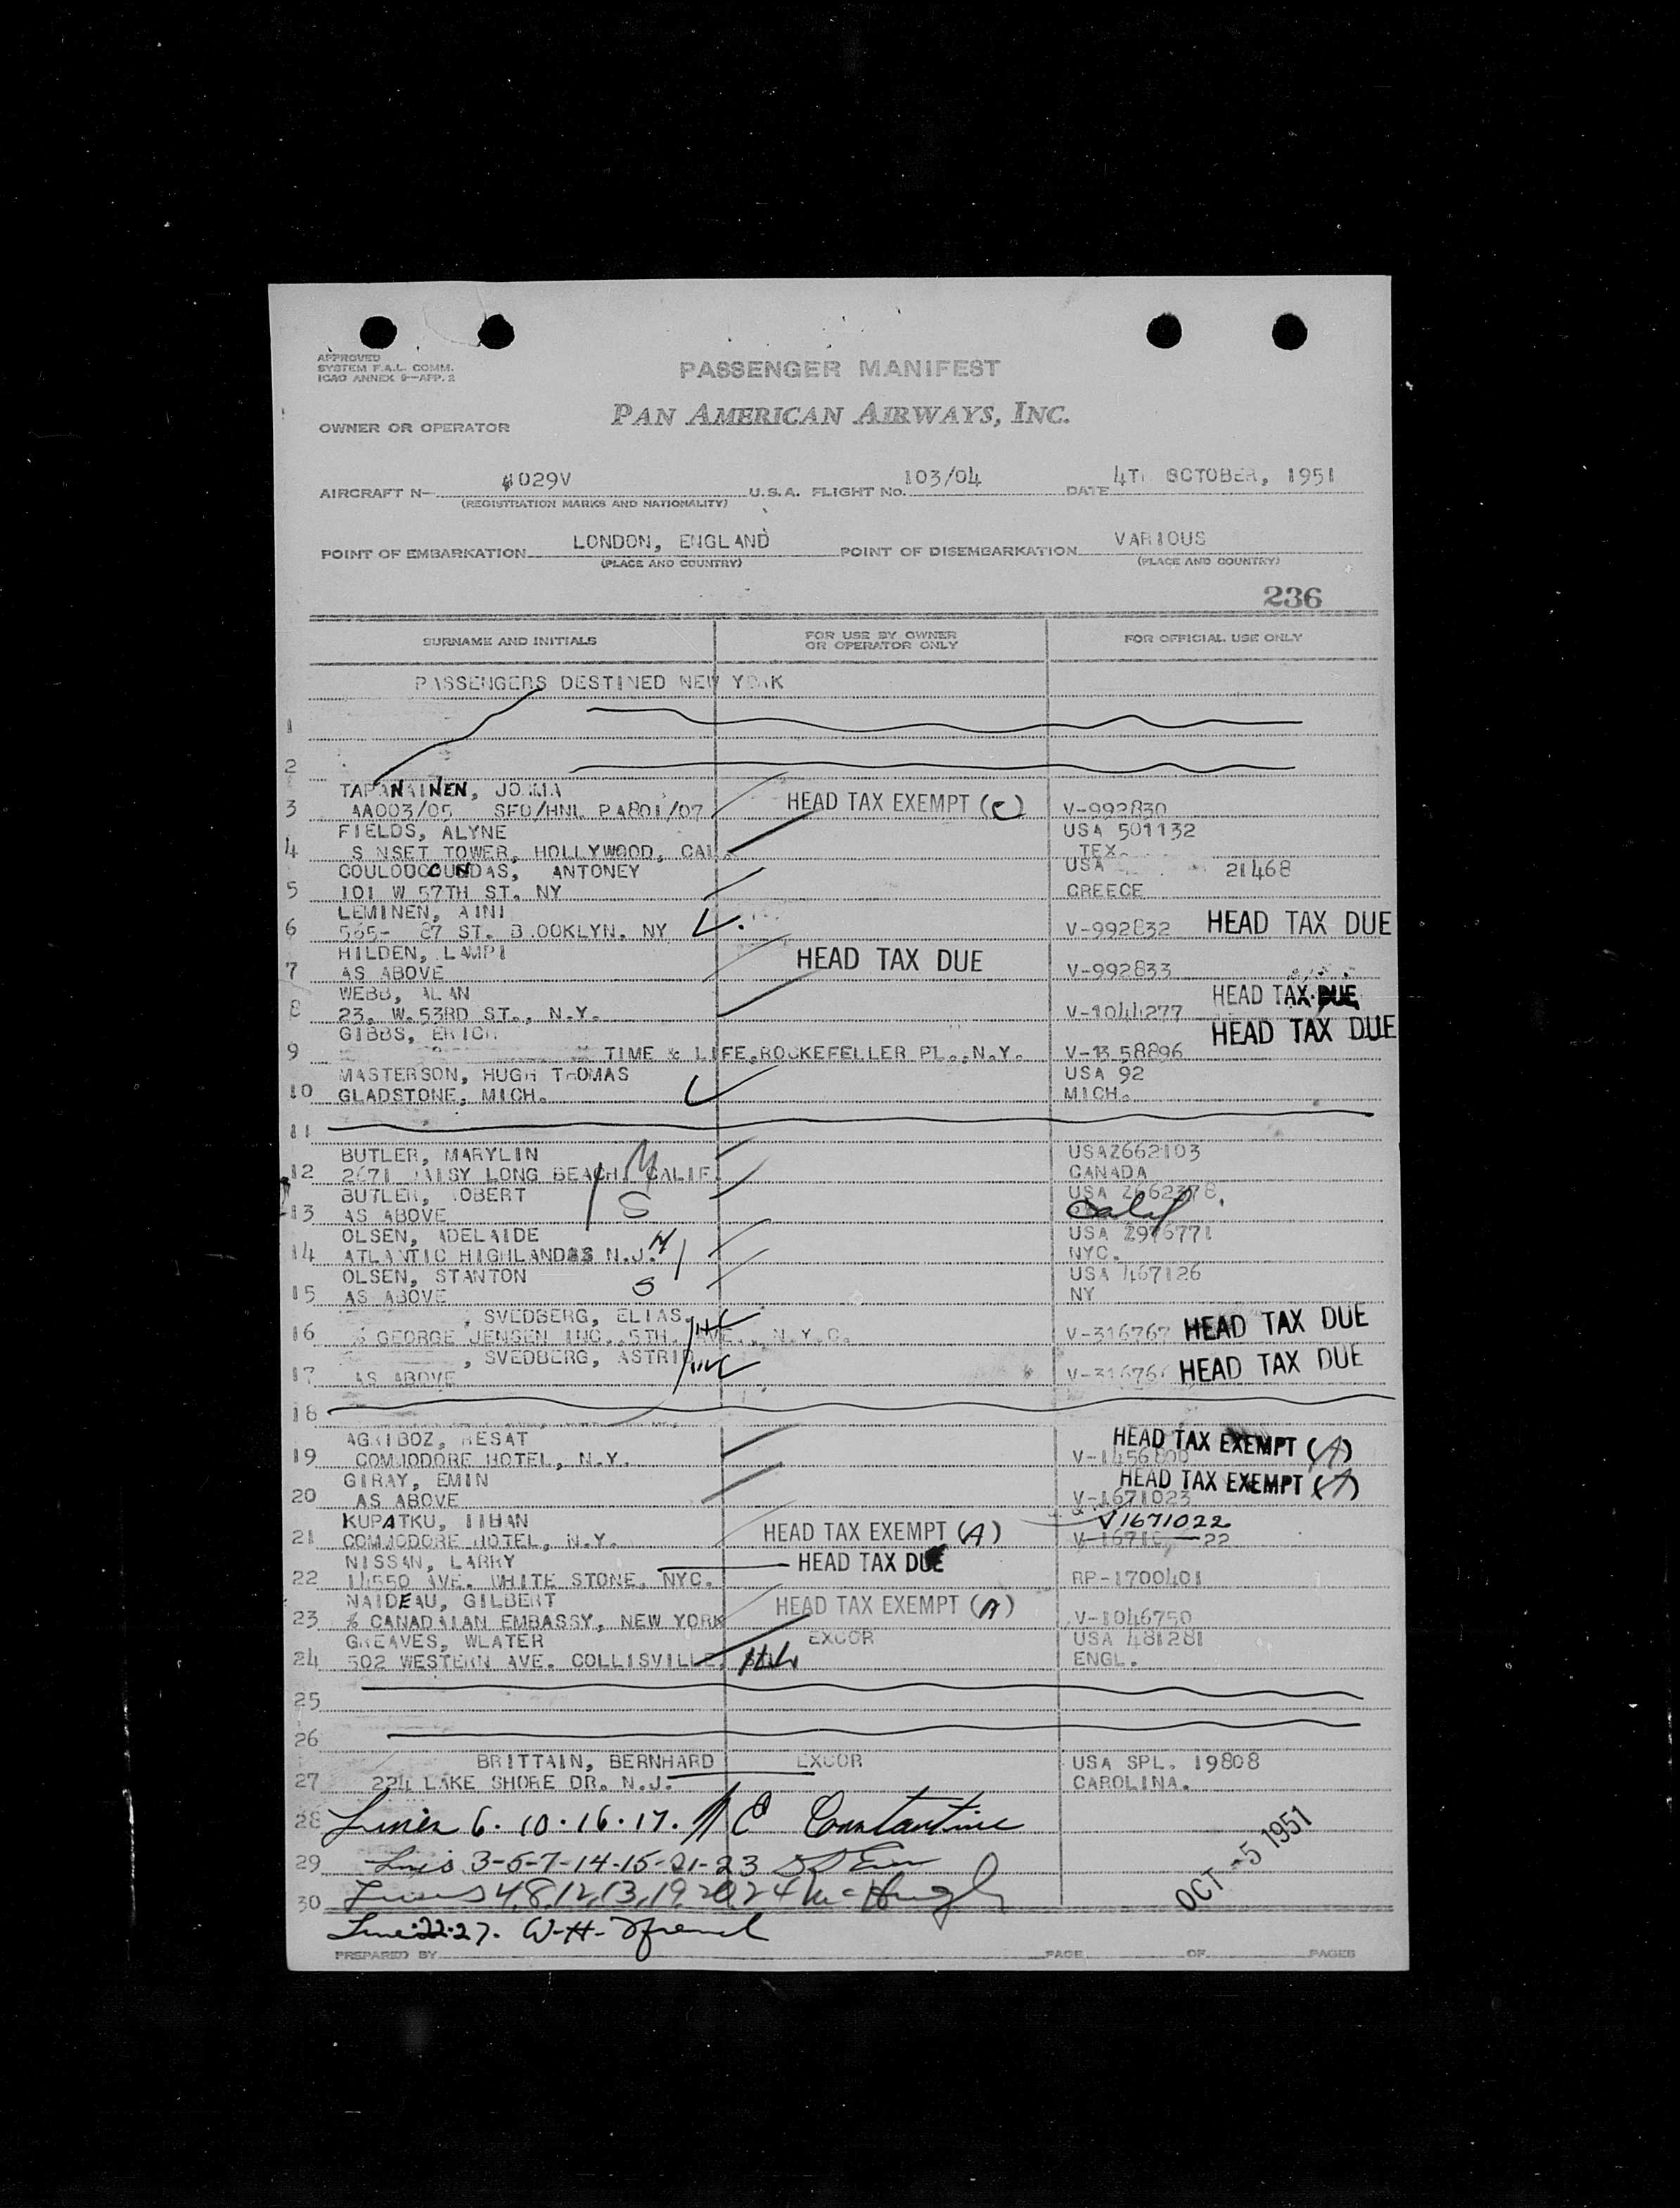 APPROVED
SYSTEM F.A.L. COMM.
ICAO ANNEX 9—APP. 2
PASSENGER MANIFEST
OWNER OR OPERATOR PAN AMERICAN AIRWAYS, INC.
AIRCRAFT N- 1029V U.S.A. FLIGHT No. 103/04 DATE 4TH OCTOBER, 1951
(REGISTRATION MARKS AND NATIONALITY)
POINT OF EMBARKATION LONDON, ENGLAND POINT OF DISEMBARKATION VARIOUS
(PLACE AND COUNTRY) (PLACE AND COUNTRY)
236
SURNAME AND INITIALS FOR USE BY OWNER OR OPERATOR ONLY FOR OFFICIAL USE ONLY
PASSENGERS DESTINED NEW YORK
1
2
TAPANAINEN, JORMA
3 AA003/05 SFO/HNL PA801/07 HEAD TAX EXEMPT (C) V-992830
FIELDS, ALYNE USA 501132
4 SUNSET TOWER, HOLLYWOOD, CAL. TEX
COULOUCOUNDAS, ANTONEY USA 21468
5 101 W 57TH ST. NY GREECE
LEMINEN, AINI
6 565- 87 ST. BROOKLYN. NY V-992832 HEAD TAX DUE
HILDEN, LAMPI
7 AS ABOVE HEAD TAX DUE V-992833
WEBB, ALAN
8 23, W.53RD ST., N.Y. V-1044277 HEAD TAX DUE
GIBBS, ERICH HEAD TAX DUE
9 TIME & LIFE,ROCKEFELLER PL.,N.Y. V-1358896
MASTERSON, HUGH THOMAS USA 92
10 GLADSTONE, MICH. MICH.
11
BUTLER, MARYLIN M USAZ662103
12 2671 DAISY LONG BEACH, CALIF. CANADA
BUTLER, ROBERT USA Z662378
13 AS ABOVE S Calif
OLSEN, ADELAIDE USA Z976771
14 ATLANTIC HIGHLANDS N.J. M NYC.
OLSEN, STANTON USA 467126
15 AS ABOVE S NY
, SVEDBERG, ELIAS,
16 % GEORGE JENSEN INC., 5TH. AVE., N.Y.C. V-316767 HEAD TAX DUE
, SVEDBERG, ASTRID
17 AS ABOVE V-31676 HEAD TAX DUE
18
AGRIBOZ, RESAT HEAD TAX EXEMPT (A)
19 COMMODORE HOTEL, N.Y. V-1456800
GIRAY, EMIN HEAD TAX EXEMPT (A)
20 AS ABOVE V-1671023
KUPATKU, V1671022
21 COMMODORE HOTEL, N.Y. HEAD TAX EXEMPT (A) V-1671 22
NISSAN, LARRY HEAD TAX DUE
22 14550 AVE. WHITE STONE, NYC. RP-1700401
NAIDEAU, GILBERT HEAD TAX EXEMPT (A)
23 % CANADAIAN EMBASSY, NEW YORK V-1046750
GREAVES, WLATER EXCOR USA 481281
24 502 WESTERN AVE. COLLISVILLE, ENGL.
25
26
BRITTAIN, BERNHARD EXCOR USA SPL. 19808
27 224 LAKE SHORE DR. N.J. CAROLINA.
28 Lines 6.10.16.17. C Constantine
29 Lines 3-5-7-14-15-21-23
OCT -5 1951
30 Lines 4,8,12,13,19,20,24 McHugh
Lines 22.27. W.H.
PREPARED BY PAGE OF PAGES